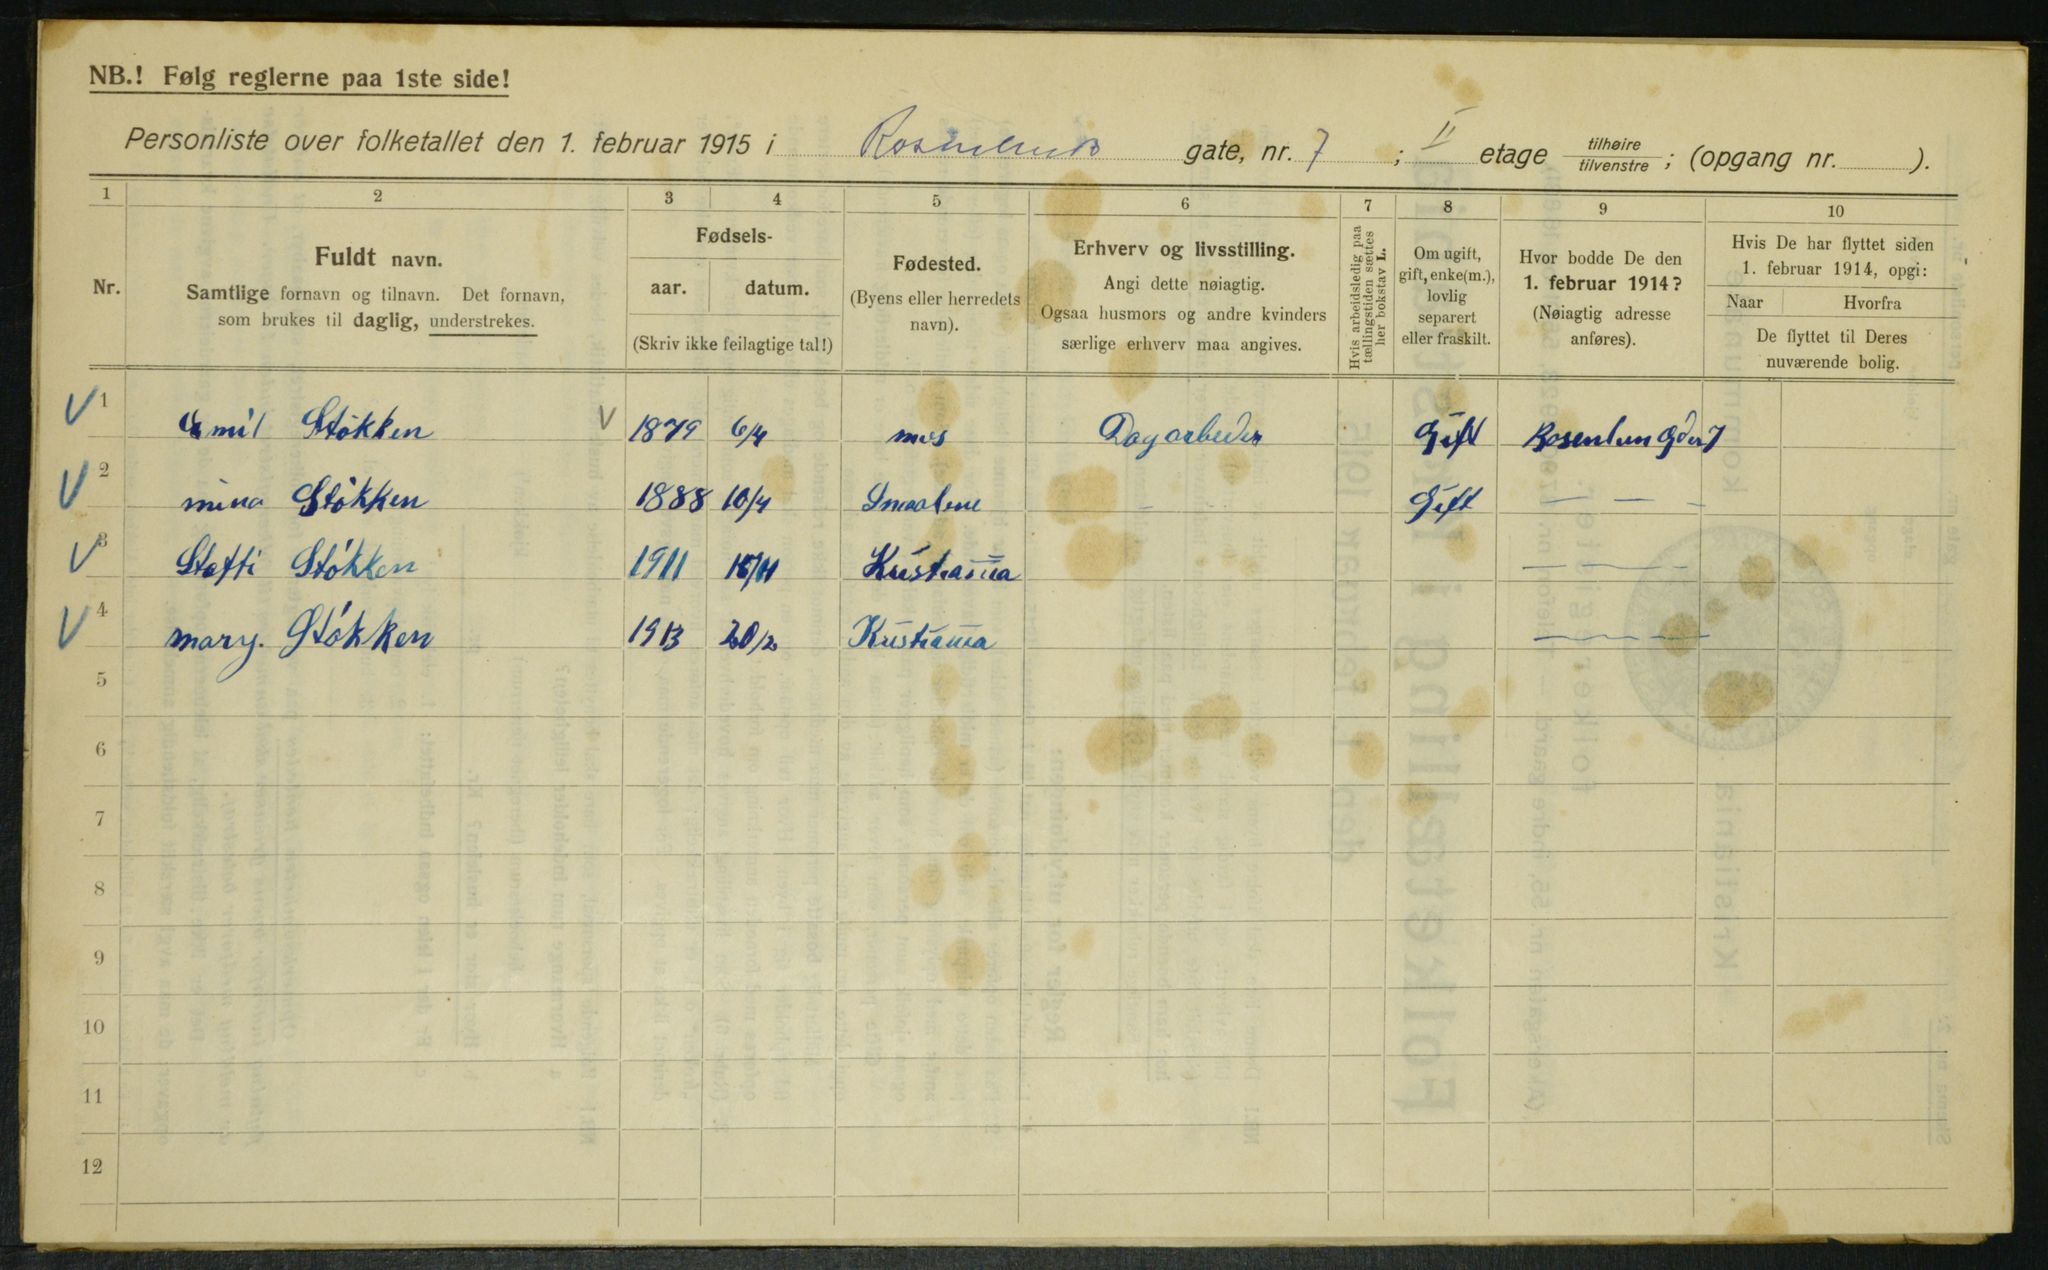 NB.! Følg reglerne paa 1ste side!
Personliste over folketallet den 1. februar 1915 i Rosenlund gate, nr. 7 ; II etage tilhøire tilvenstre ; (opgang nr. ).
1 2 3 4 5 6 7 8 9 10
Nr.
Fuldt navn.
Samtlige fornavn og tilnavn. Det fornavn,
som brukes til daglig, understrekes.
Fødsels-
aar. datum.
(Skriv ikke feilagtige tal!)
Fødested.
(Byens eller herredets
navn).
Erhverv og livsstilling.
Angi dette nøiagtig.
Ogsaa husmors og andre kvinders
særlige erhverv maa angives.
Hvis arbeidsledig paa
tællingstiden sættes
her bokstav L.
Om ugift,
gift, enke(m.),
lovlig
separert
eller fraskilt.
Hvor bodde De den
1. februar 1914?
(Nøiagtig adresse
anføres).
Hvis De har flyttet siden
1. februar 1914, opgi:
Naar Hvorfra
De flyttet til Deres
nuværende bolig.
1 Emil Stökken 1879 6/4 mos Dagarbeder Gift
2 mina Stökken 1888 10/4 Smaalene Gift — — —
3 Staffi Stökken 1911 Kristiania — — —
4 mary. Stökken 1913 20/2 Kristiania — — —
5
6
7
8
9
10
11
12